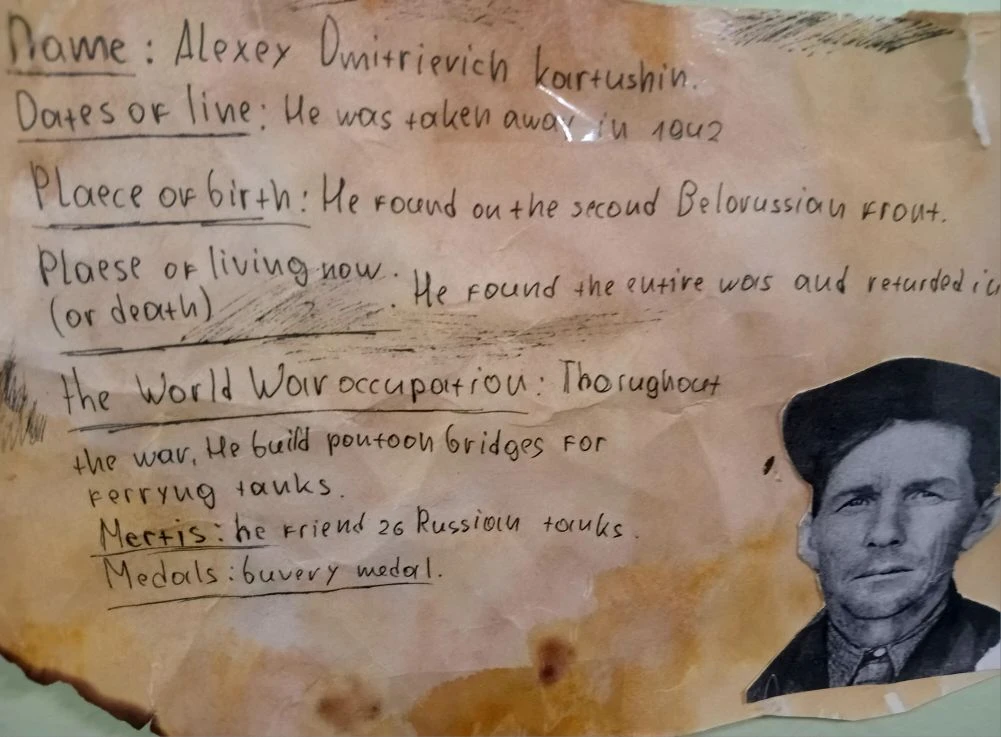 Name: Alexey Dmitrievich kartushin.
Dates of line: He was taken away in 1942
Plaece of birth: He found on the second Belorussian front.
Plaese of living now.
(or death) . He found the entire wars and returded in
the World War occupation: Thorughout
the war, He build pontoon bridges for
ferryng tanks.
Mertis: he friend 26 Russian tanks.
Medals: buvery medal.